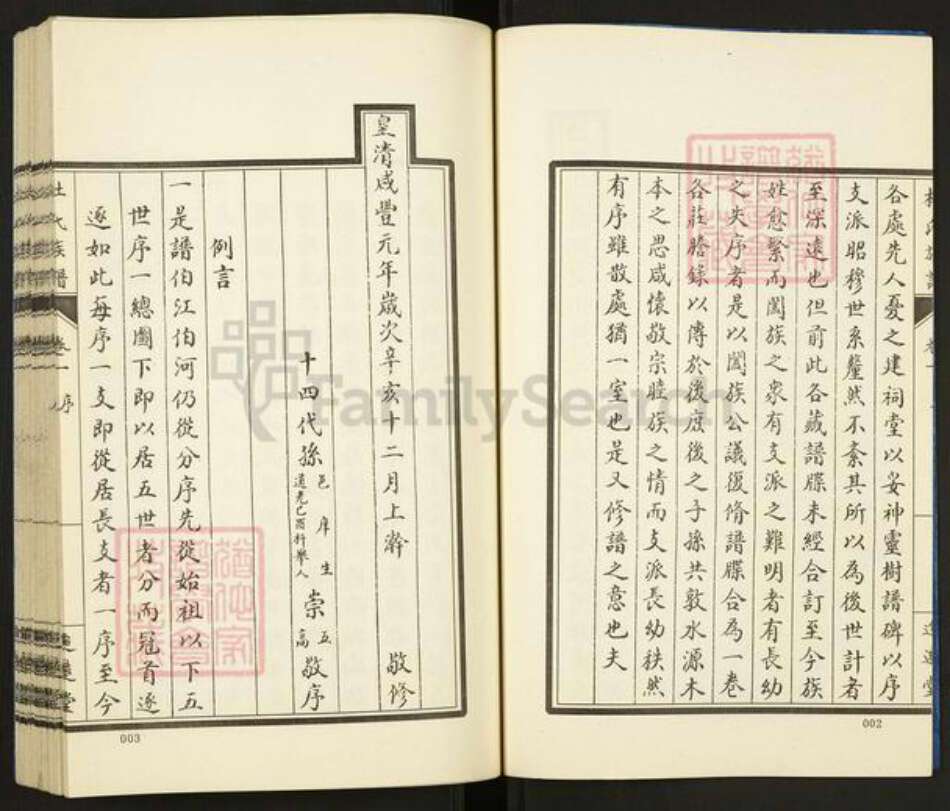 各處先人憂之建祠堂以妥神靈樹譜碑以序
支派昭穆世系釐然不紊其所以為後世計者
至深遠也但前此各藏譜牒未經合訂至今族
姓愈繁而闔族之衆有支派之難明者有長幼
之失序者是以闔族公議復脩譜牒合為一卷
各莊謄錄以傳於後庶後之子孫共敦水源木
本之思咸懷敬宗睦族之情而支派長幼秩然
有序雖散處猶一室也是又修譜之意也夫
002
皇清咸豐元年歲次辛亥十二月上澣 敬修
十四代孫 邑庠生 崇五 敬序
道光己酉科舉人 崇高
例言
一是譜伯江伯河仍從分序先從始祖以下五
世序一總圖下即以居五世者分而冠首逐
逐如此每序一支即從居長支者一序至今
杜氏族譜 卷一 序
003
FamilySearch